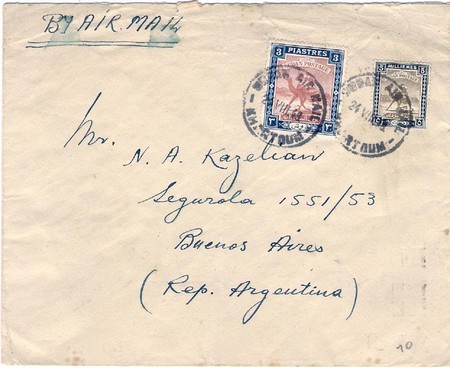 BY AIR MAIL
3 PIASTRES 3
٣ ٣
5 MILLIEMES 5
AIR MAIL
KHARTOUM
24 VIII
KHARTOUM
Mr.
N. A. Kazelian
Segurola 1551/53
Buenos Aires
(Rep. Argentina)
10